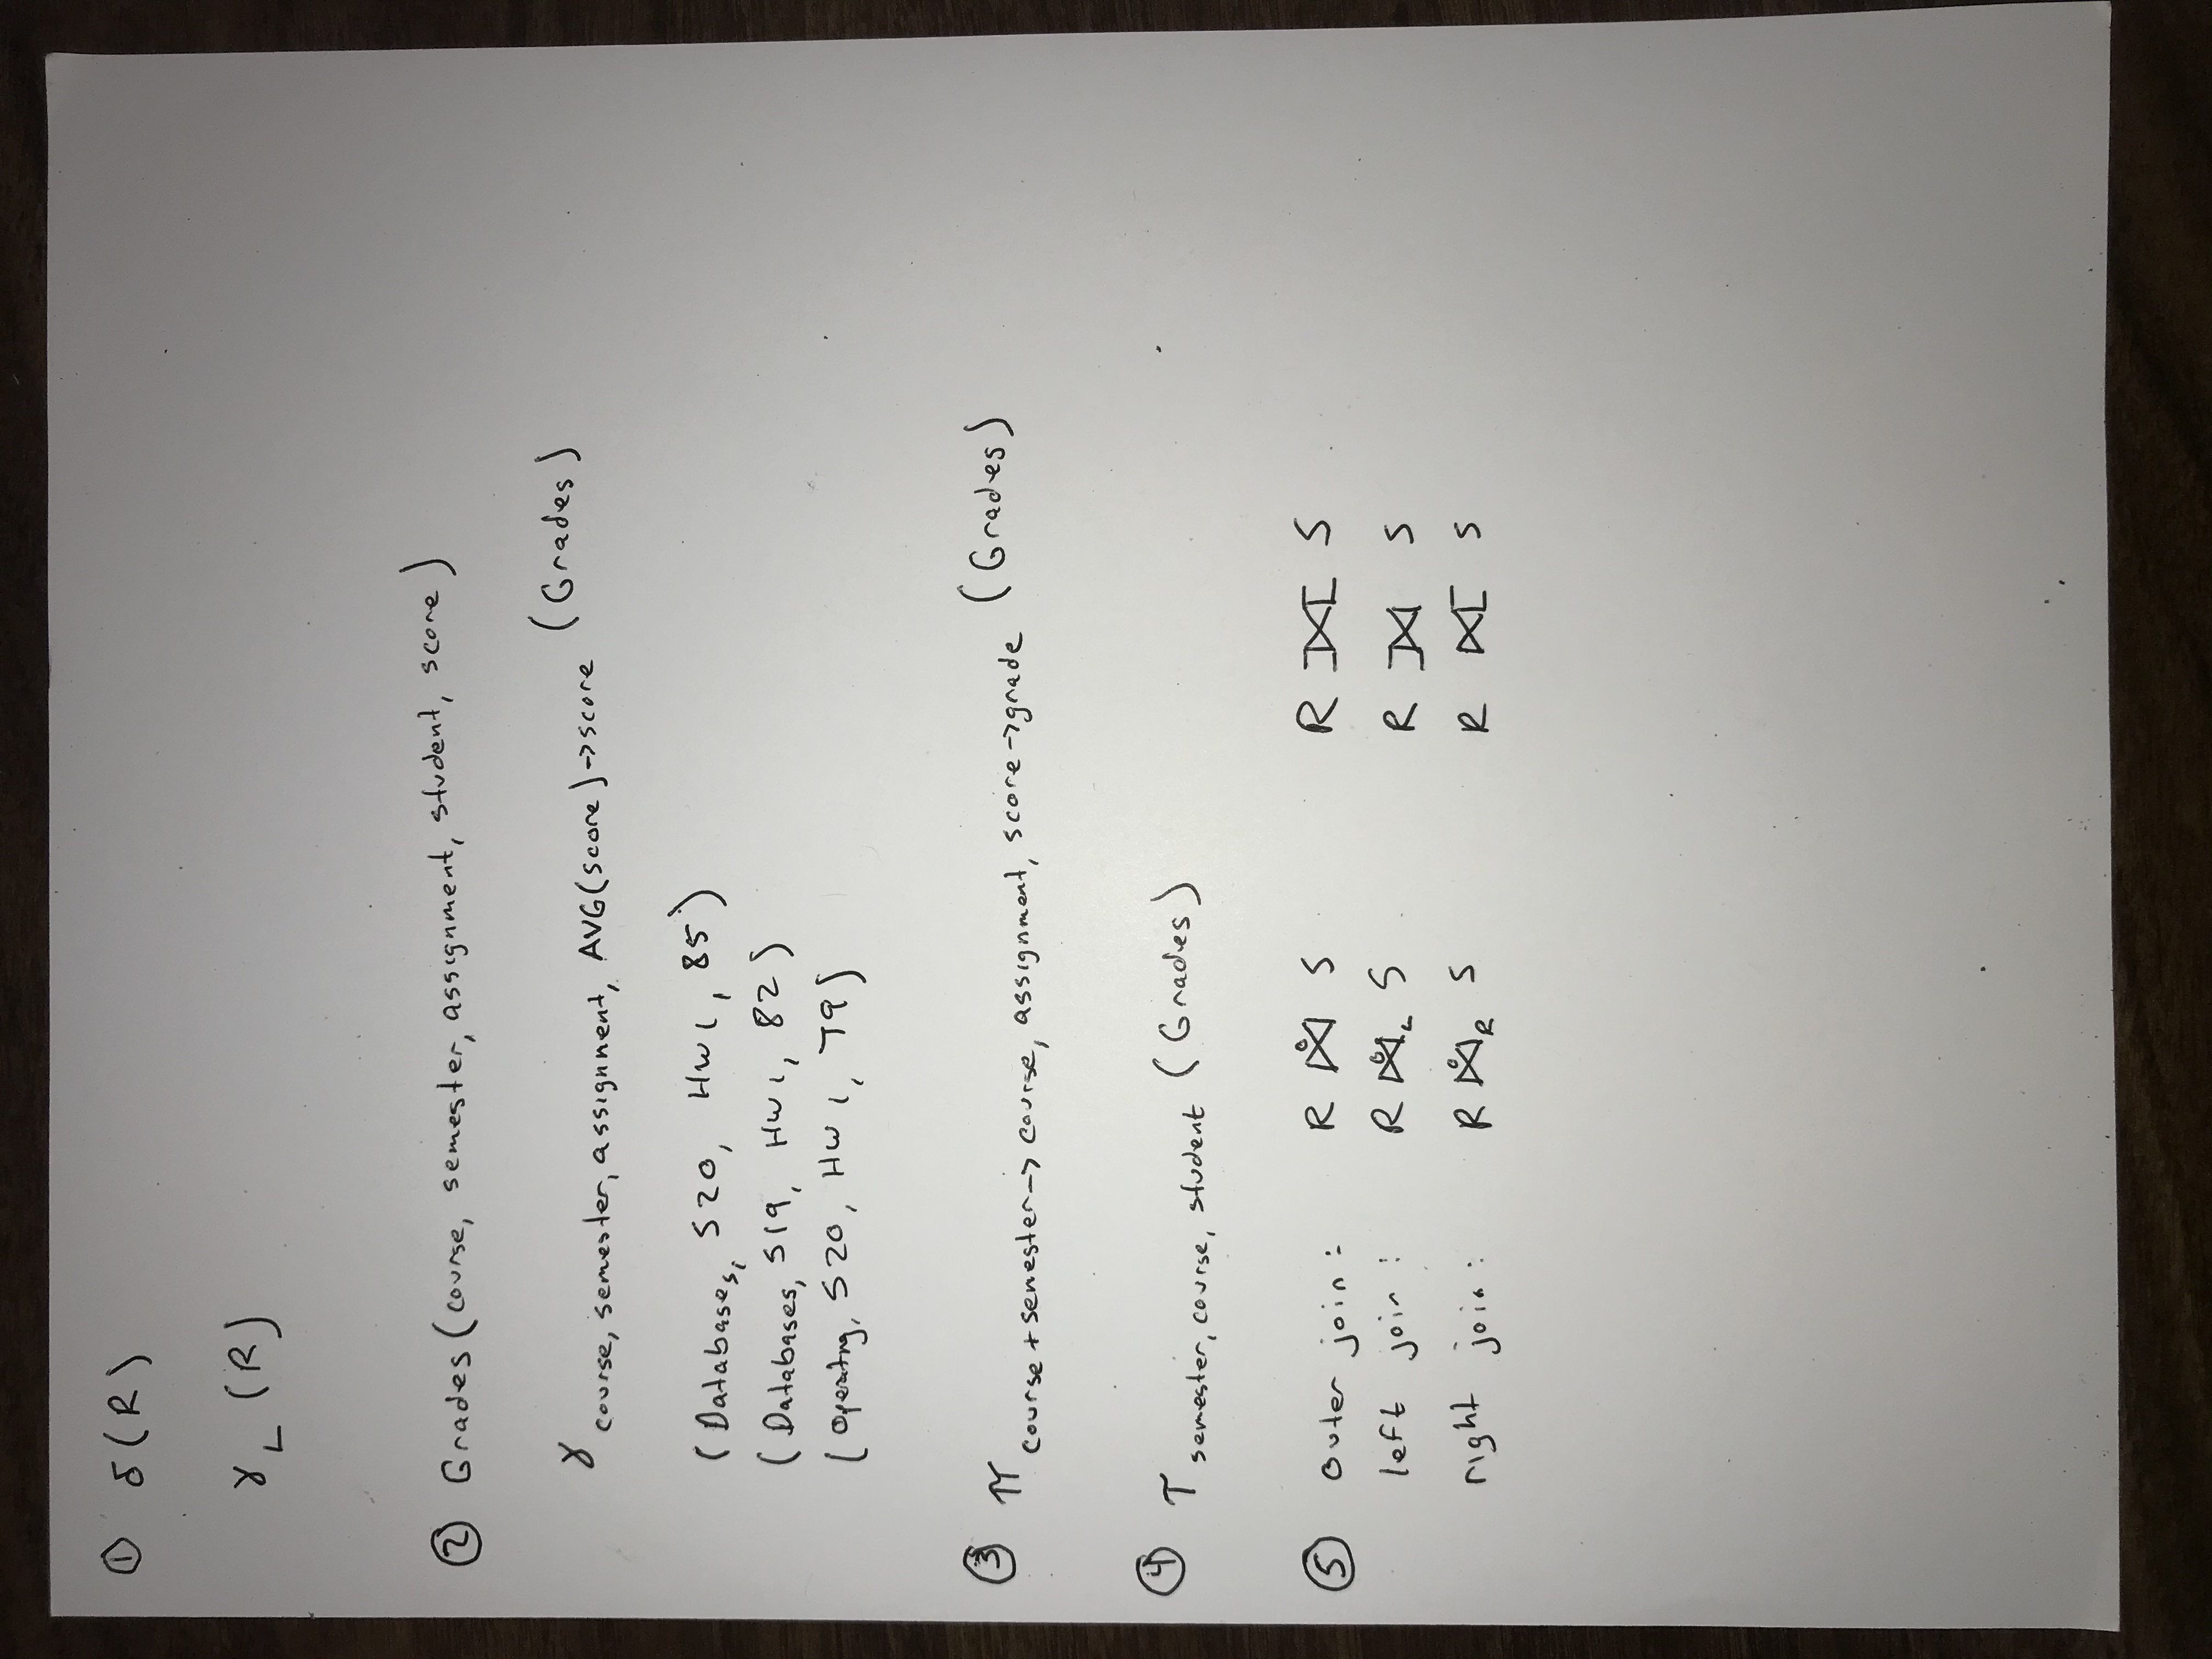 ① δ(R)
γ L (R)
② Grades(course, semester, assignment, student, score)
γ course, semester, assignment, AVG(score)->score (Grades)
(Databases, S20, HW1, 85)
(Databases, S19, HW1, 82)
(Operatng, S20, HW1, 79)
③ π course+semester-> course, assignment, score->grade (Grades)
④ τ semester, course, student (Grades)
⑤ outer join: R ⋈̊ S R ⟗ S
left join: R ⋈̊ L S R ⟕ S
right join: R ⋈̊ R S R ⟖ S